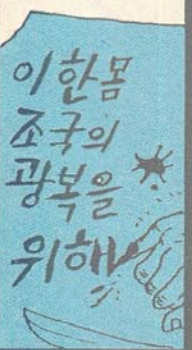 이 한몸
조국의
광복을
위해